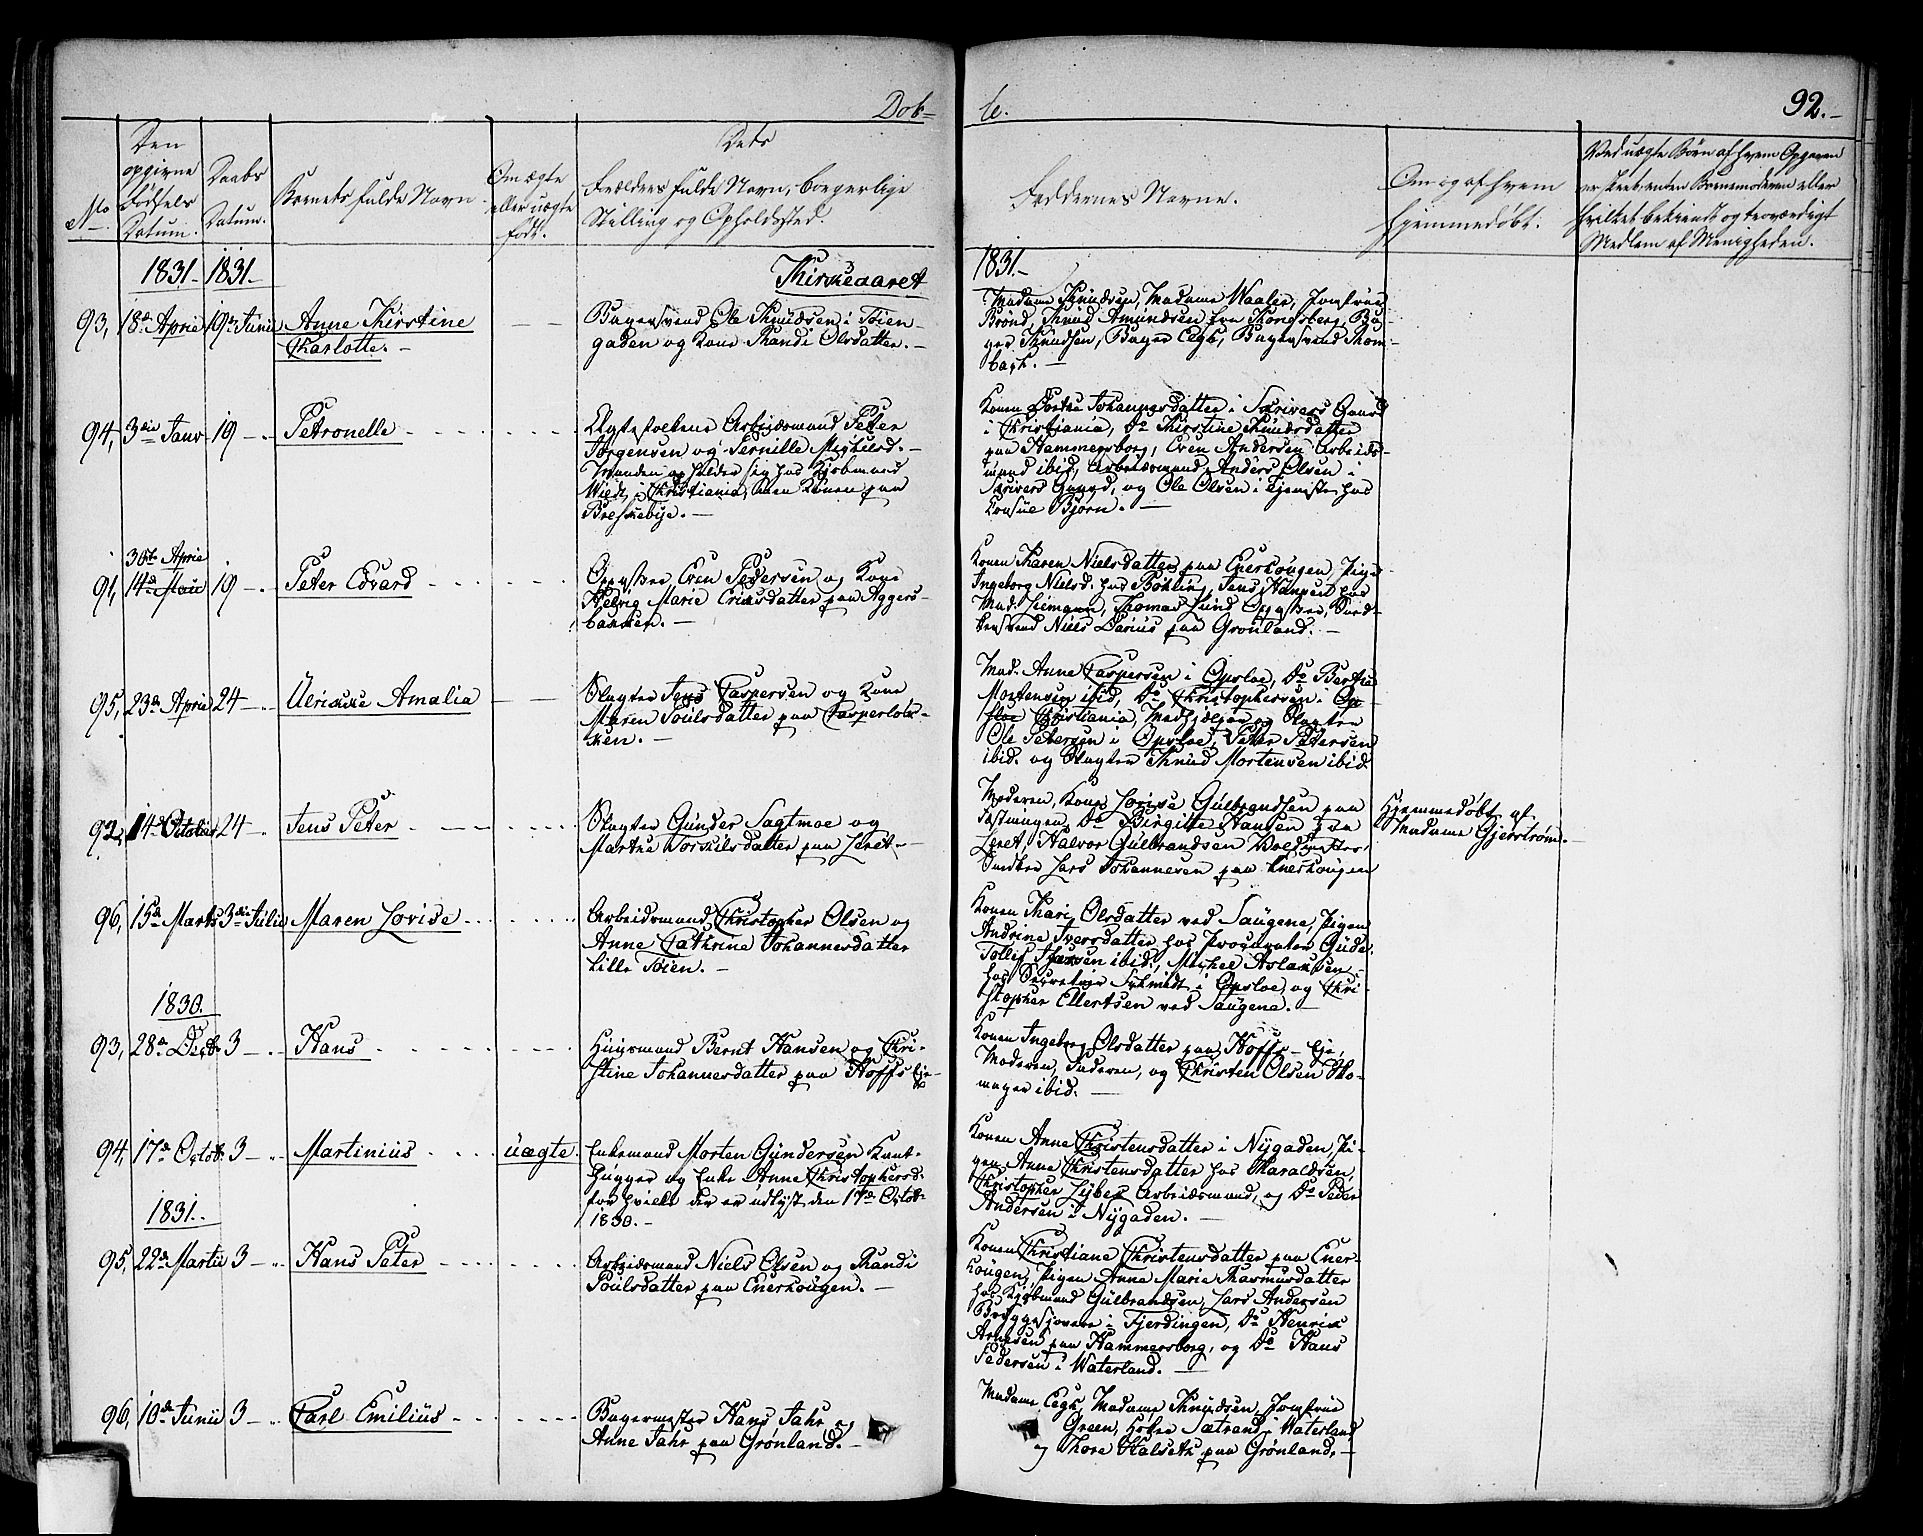 Dob=
te.
92.-
No
Den opgivne Fødsels Datum.
Daabs Datum.
Barnets fulde Navn.
Om ægte eller uægte født.
Dets
Forældres fulde Navn, borgerlige
Stilling og Opholdssted.
Faddernes Navne.
Om og af hvem
hjemmedøbt.
Ved uægte Børn af hvem Opgaven
er skeet, enten Barnemoderen eller
hvilket bekiendt og troværdigt
Medlem af Menigheden.
1831.- 1831.-
Kirkeaaret
1831.-
93, 18de April 19de Junii Anne Kirstine
Charlotte. -
Bagersvend Ole Knudsen i Tøien-
gaden og Kone Randi Olsdatter. -
Madame Knudsen, Madame Waaler, Jomfrue
Brönd, Knud Amundsen fra Kongsberg, Ba-
ger Knudsen, Bager Cegh, Bagersvend Thom-
bach. -
94, 3die Janr 19 -.. Petronelle
Ægtefolkene Arbeidsmand Peter
Jørgensen og Pernille Michelsd. -
Manden opholder sig hos Kjøbmand
Wiedt i Christiania, men Konen paa
Breskebye. -
Konen Dorthe Johannesdatter i Skrivers Gaard
i Christiania, Do Kirstine Knudsdatter
paa Hammersborg, Even Andersen Arbeids-
mand ibid, Arbeidsmand Anders Olsen i
Skrivers Gaard, og Ole Olsen i Tjeniste hos
Consul Bjørn. -
30te April
91, 14de Maii 19 -.. Peter Edvard
Opsyn Even Pedersen og Kone
Helvig Marie Eriksdatter paa Aggers-
bakken. -
Konen Karen Nielsdatter paa Enerhougen, Pige
Ingeborg Nielsd. hos Böhling, Jens Hansen hos
Mad. Ziemann, Thomas Lund
Niels Darius paa Grönland. -
95, 23de April 24 -.. Ulrikke Amalia
Slagter Jens Caspersen og Kone
Maren Poulsdatter paa Casperløk-
ken. -
Mad. Anne Caspersen i Opsloe, Do Berthe
Mortensen ibid, Do Christophersen i Op-
sloe Christiania, og Slagter
Ole Petersen i Opsloe, Peter Petersen
ibid. og Slagter Knud Mortensen ibid.
92, 14de October 24 -.. Jens Peter
Slagter Gunder Sagtmoe og
Marthe Torkilsdatter paa Leret. -
Moderen, Kone Lovise Gulbrandsen paa
Fæstningen, Do Birgitte Hansen paa
Leret, Halvor Gulbrandsen
Snedker Lars Johannesen paa Enerhougen
Hjemmedøbt af
Madame Gjerström. -
96, 15de Marts 3die Julii Maren Lovise
Arbeidsmand Christopher Olsen og
Anne Cathrine Johannesdatter
Lille Töien. -
Konen Kari Olsdatter ved Saugene, Pigen
Andrine Iversdatter hos Procurator Gude.
Tollef Iversen ibid., Michel Aslaksen
hos Secretair Schmidt i Opsloe, og Chri-
stopher Ellertsen ved Saugene. -
1830.
93, 28de Decb. 3 -.. Hans
Huusmand Bernt Hansen og Chri-
stine Johannesdatter paa Hoffs Eje
Konen Ingeborg Olsdatter paa Hoffs-Eje,
Moderen, Faderen, og Christen Olsen Sko-
mager ibid. -
94, 17de Octob. 3 -.. Martinius
uægte.
Enkemand Morten Gundersen Kant-
hugger og Enke Anne Christophersd.
for hvilke der er udlyst den 17de Octob.
1830. -
Konen Anne Christensdatter i Nygaden, Pi-
gen Anne Christensdatter hos Haraldsen,
Christopher Lyber Arbeidsmand, og Do Peder
Andersen i Nygaden. -
1831.
95, 22de Martii 3 -.. Hans Peter
Arbeidsmand Niels Olsen og Randi
Poulsdatter paa Enerhougen. -
Konen Christiane Christensdatter paa Ener-
hougen, Pigen Anne Marie Rasmusdatter
hos Kjøbmand Gulbrandsen, Lars Andersen
Bryggesjouer i Fjerdingen, Do Henrik
Arnesen paa Hammersborg, og Do Hans
Pedersen i Waterland. -
96, 10de Junii 3 -.. Carl Emilius
Bagermester Hans Jahr og
Anne Jahr paa Grønland. -
Madame Cegh, Madame Knudsen, Jomfrue
Green, Høker Sætrand i Waterland
og Thore Halseth paa Grønland. -